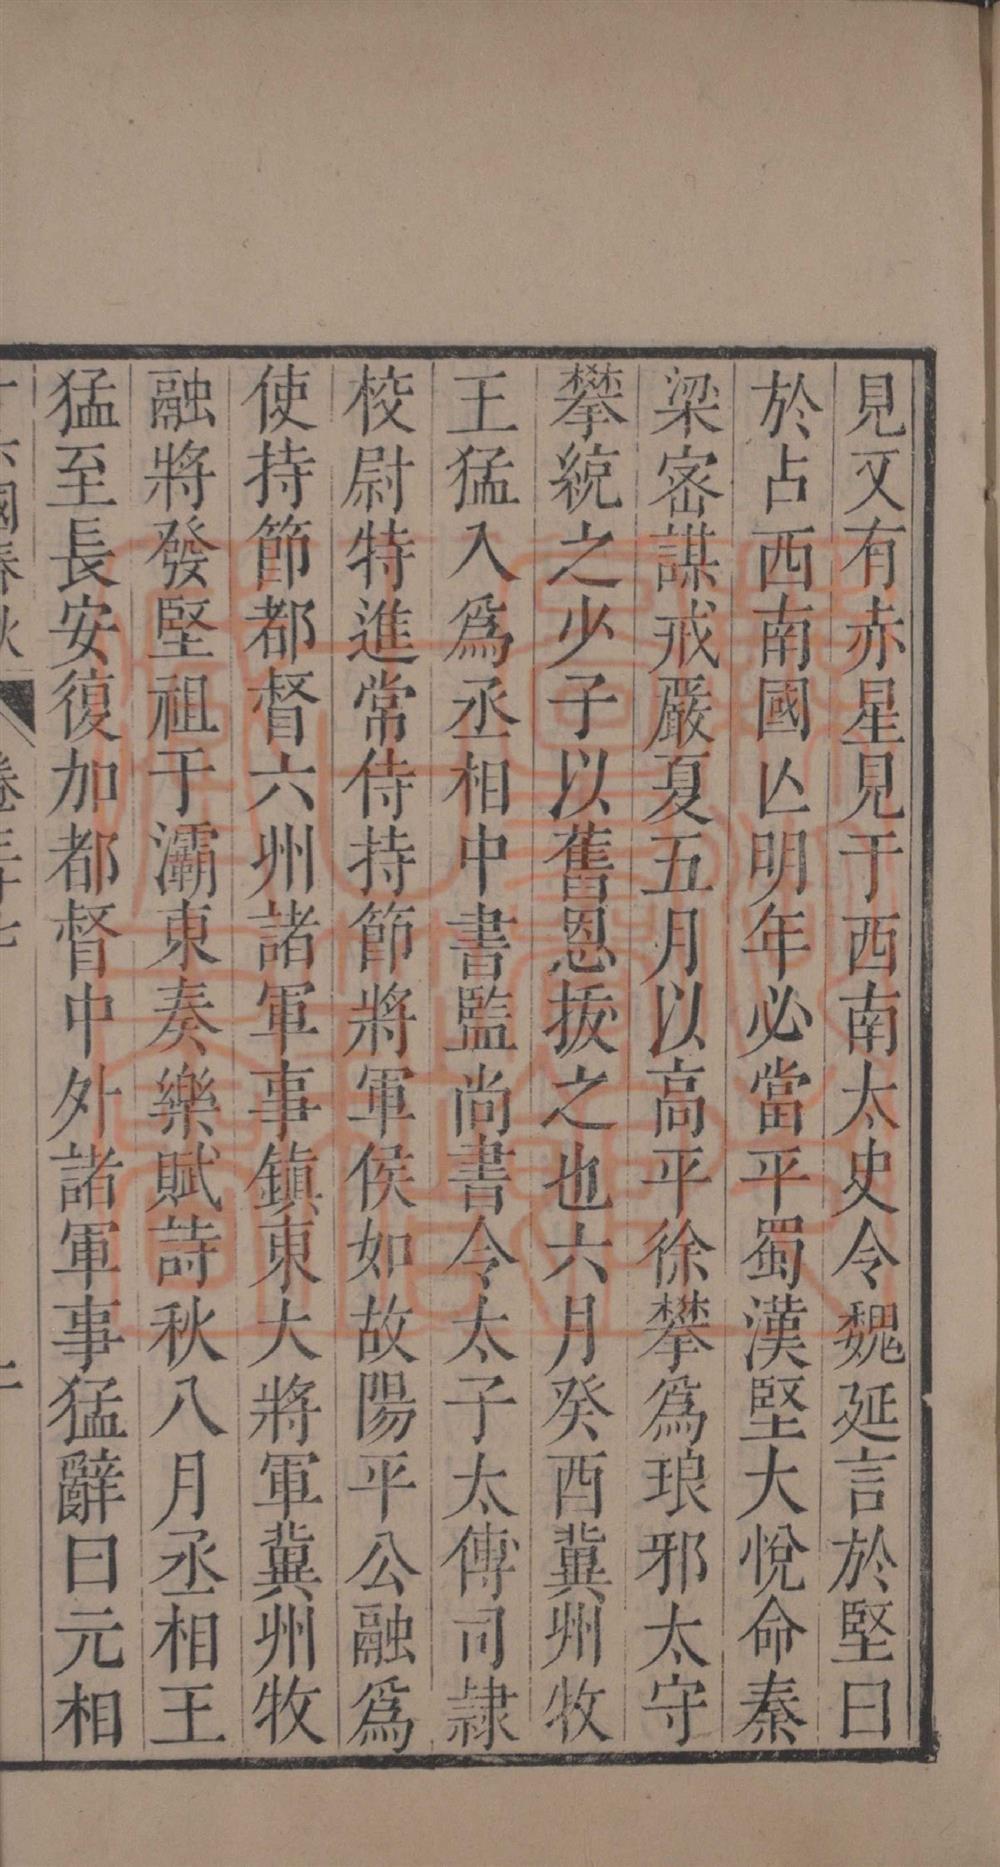 見又有赤星見于西南太史令魏延言於堅曰
於占西南國亾明年必當平蜀漢堅大悅命秦
梁密謀戒嚴夏五月以高平徐攀爲琅邪太守
攀統之少子以舊恩拔之也六月癸酉冀州牧
王猛入爲丞相中書監尚書令太子太傅司隷
校尉特進常侍持節將軍侯如故陽平公融爲
使持節都督六州諸軍事鎮東大將軍冀州牧
融將發堅祖于灞東奏樂賦詩秋八月丞相王
猛至長安復加都督中外諸軍事猛辭曰元相
十六國春秋 卷三十七